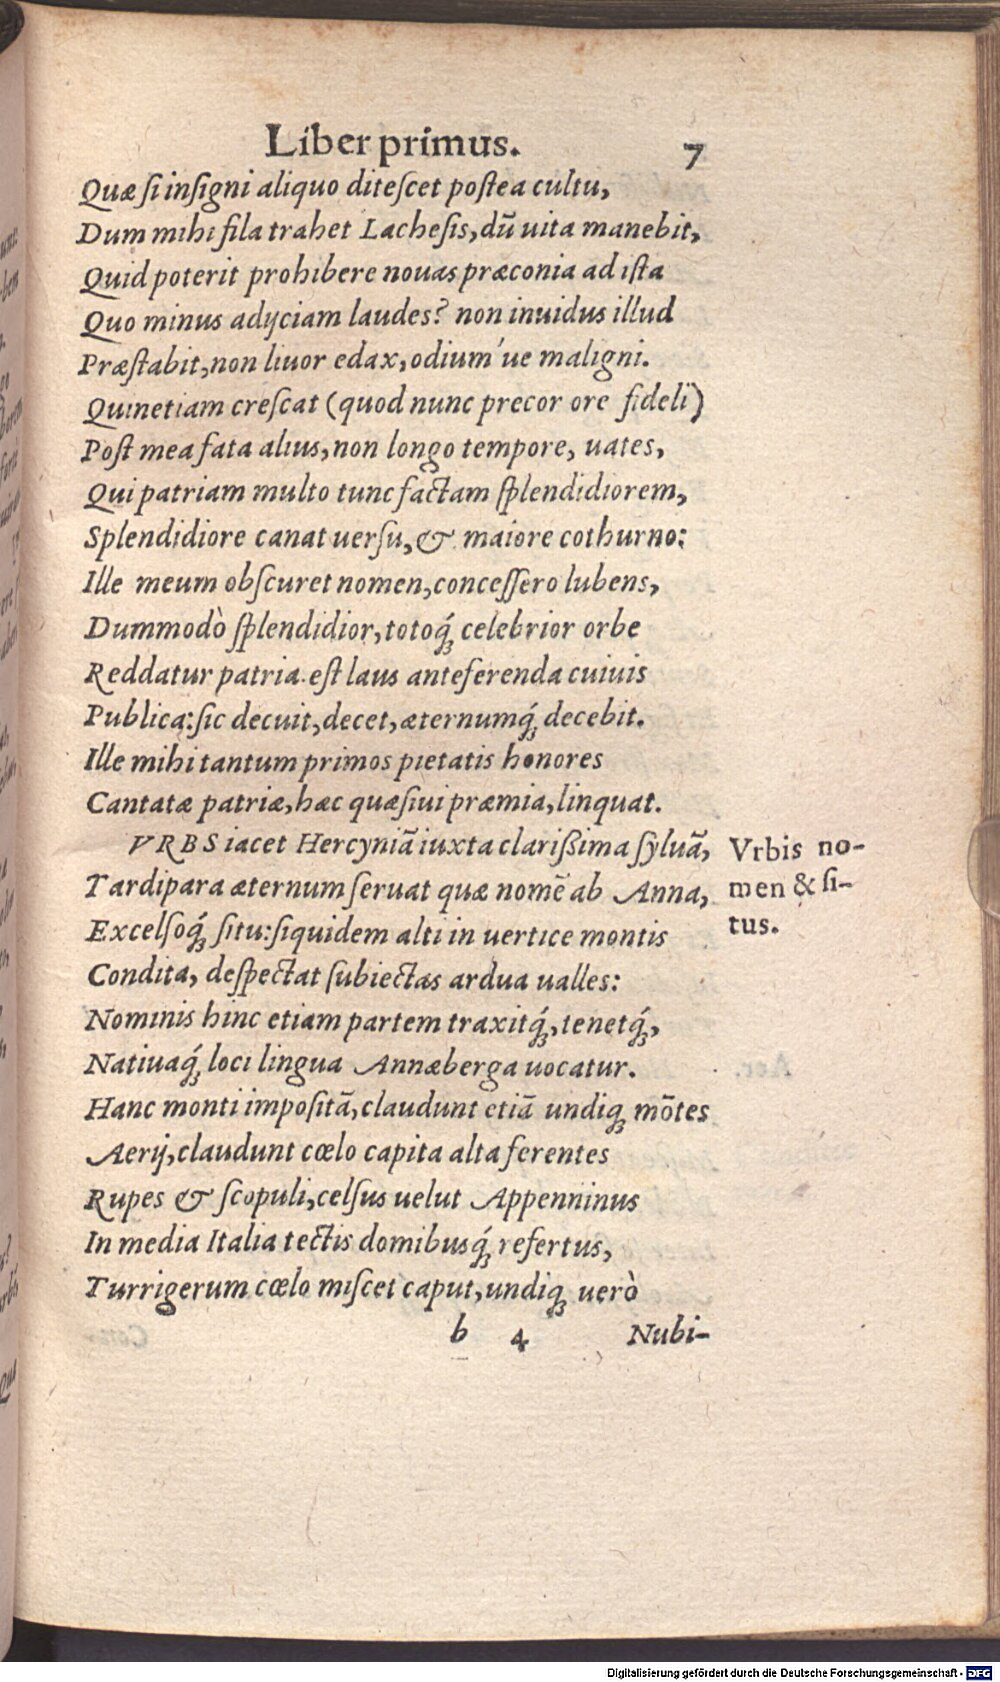 Liber primus. 7
Quæ ſi inſigni aliquo diteſcet poſtea cultu,
Dum mihi fila trahet Lacheſis, dū uita manebit,
Quid poterit prohibere nouas præconia ad iſta
Quo minus adijciam laudes? non inuidus illud
Præſtabit, non liuor edax, odium'ue maligni.
Quinetiam creſcat (quod nunc precor ore fideli)
Poſt mea fata alius, non longo tempore, uates,
Qui patriam multo tunc factam ſplendidiorem,
Splendidiore canat uerſu, & maiore cothurno:
Ille meum obſcuret nomen, conceſſero lubens,
Dummodò ſplendidior, totoq́; celebrior orbe
Reddatur patria. eſt laus anteferenda cuiuis
Publica: ſic decuit, decet, æternumq́; decebit.
Ille mihi tantum primos pietatis honores
Cantatæ patriæ, hæc quæſiui præmia, linquat.
VRBS iacet Hercyniā iuxta clariſsima ſyluā,
Tardipara æternum ſeruat quæ nomē ab Anna,
Excelſoq́; ſitu: ſiquidem alti in uertice montis
Condita, deſpectat ſubiectas ardua ualles:
Nominis hinc etiam partem traxitq́;, tenetq́;,
Natiuaq́; loci lingua Annæberga uocatur.
Hanc monti impoſitā, claudunt etiā undiq; mōtes
Aerij, claudunt cœlo capita alta ferentes
Rupes & ſcopuli, celſus uelut Appenninus
In media Italia tectis domibusq́; refertus,
Turrigerum cœlo miſcet caput, undiq; uerò
b 4 Nubi-
Vrbis no-
men & ſi-
tus.
Digitalisierung gefördert durch die Deutsche Forschungsgemeinschaft - DFG